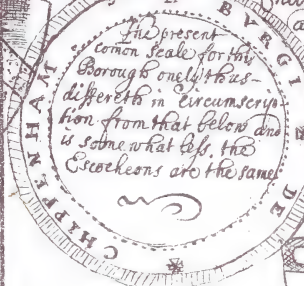 The present
comon Scale for this
Borough onely thus
differeth in Circumscryp
tion from that below and
is some what less, the
Escocheons are the same
BVRGI
DE
CHIPPENHAM